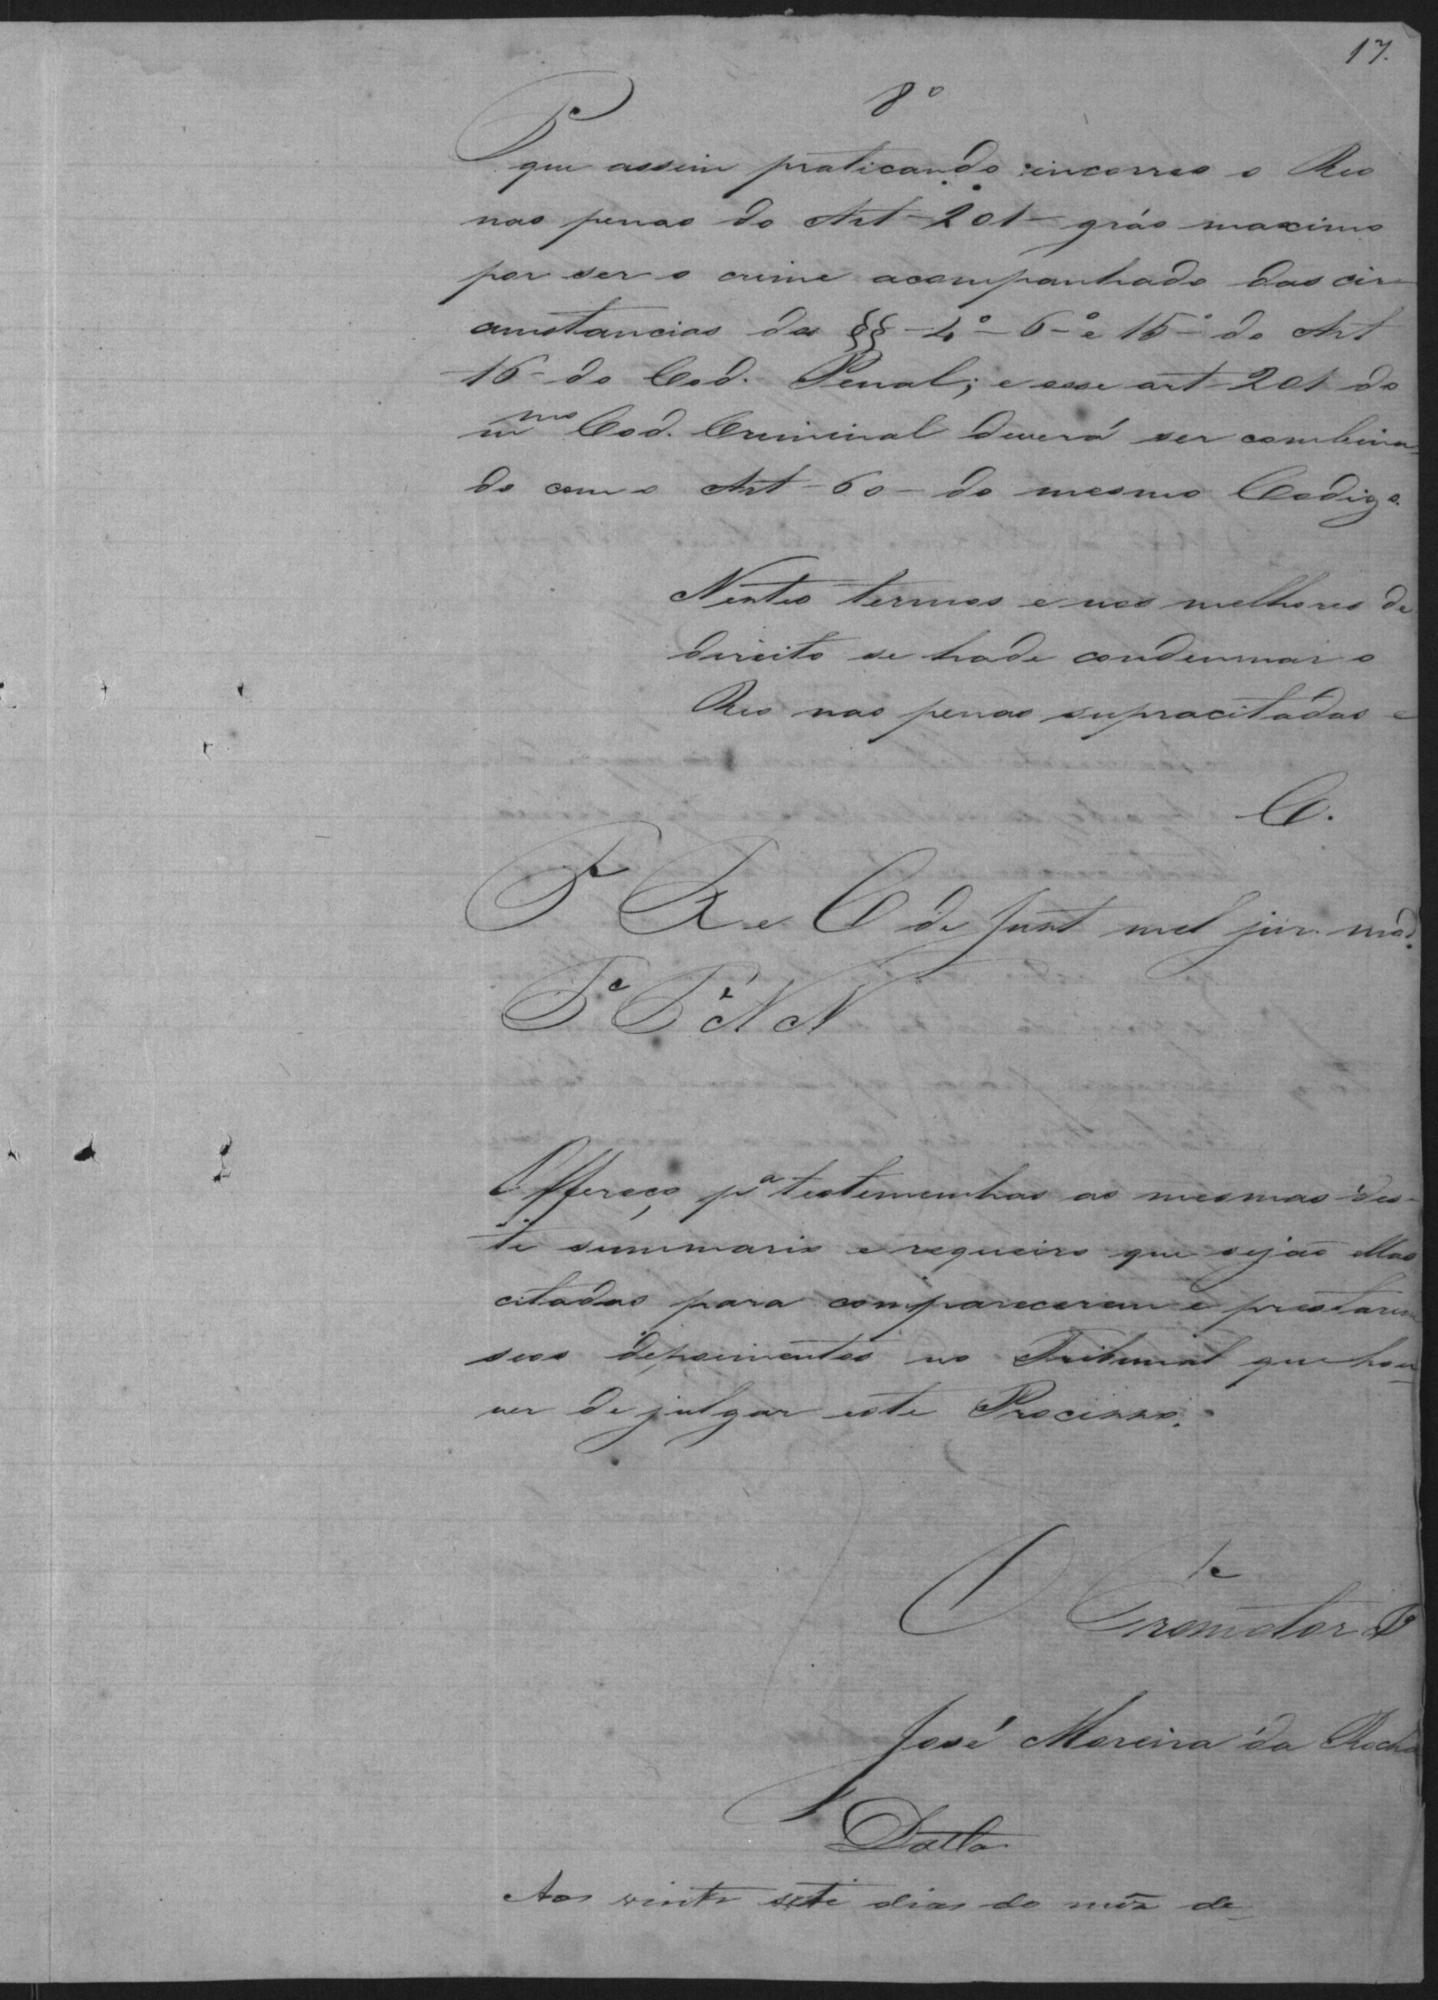 17.
8º
P
que assim praticando incorreo o Reo
nas penas do Art 201 gráo maximo
por ser o crime acompanhado das cir
cunstancias dos §§ 4º 6º e 15º do Art
16 do Cod. Penal; e esse art 201 do
mmo Cod. Criminal deverá ser combina
do com o Art 60 do mesmo Codigo.
Nestes termos e nos melhores de
direito se hade condemnar o
Reo nas penas supracitadas e
C.
P R e C de Just mel jur. mod.
P P N N
Offereço pª testemunhas as mesmas des-
te summario e requeiro que sejão ellas
citadas para comparecerem e prestarem
seos depoimentos no Tribunal que hou
ver de julgar este Processo.
O Promotor P
José Moreira da Rocha
Datta
Aos vinte sete dias do mez de